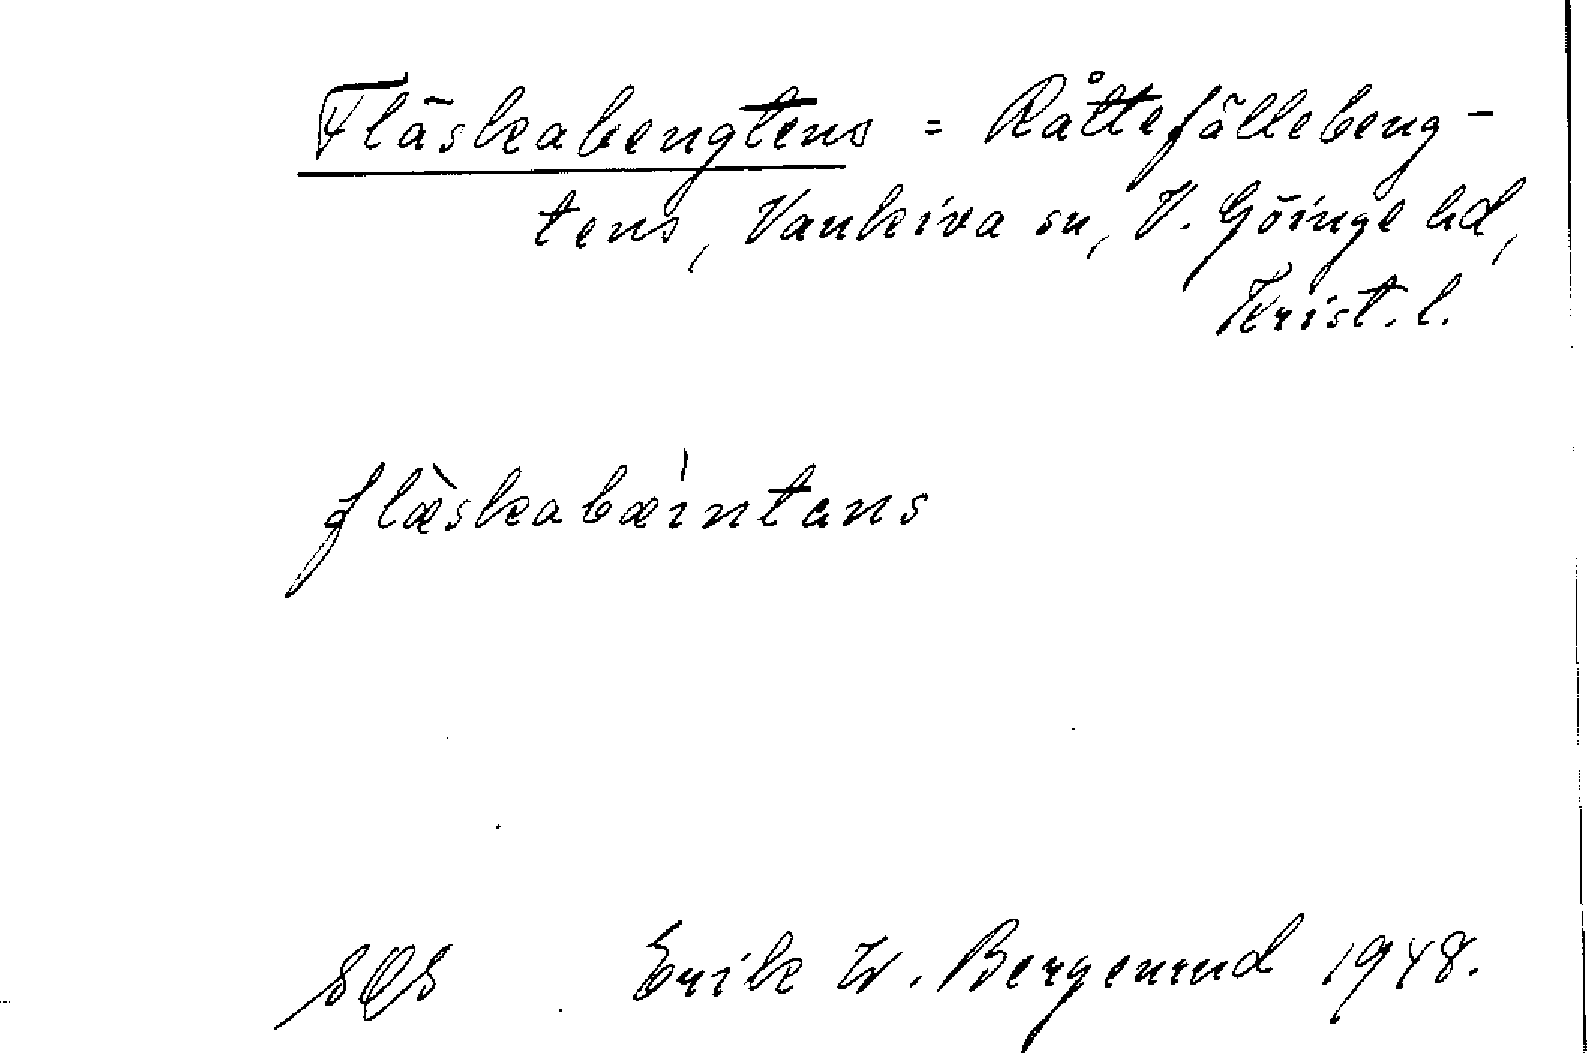 Fläskabengtens = Råttefälleberg-
tens, Vankiva sn, V. Göinge hd,
Krist. l.
flæ̀skabæíntans
Erik W. Bergenrud 1948.